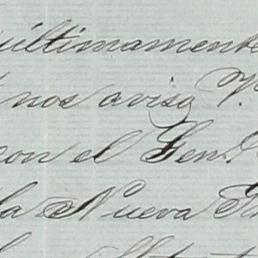 últimamente
nos avisa V.
con el Gen.
la Nueva